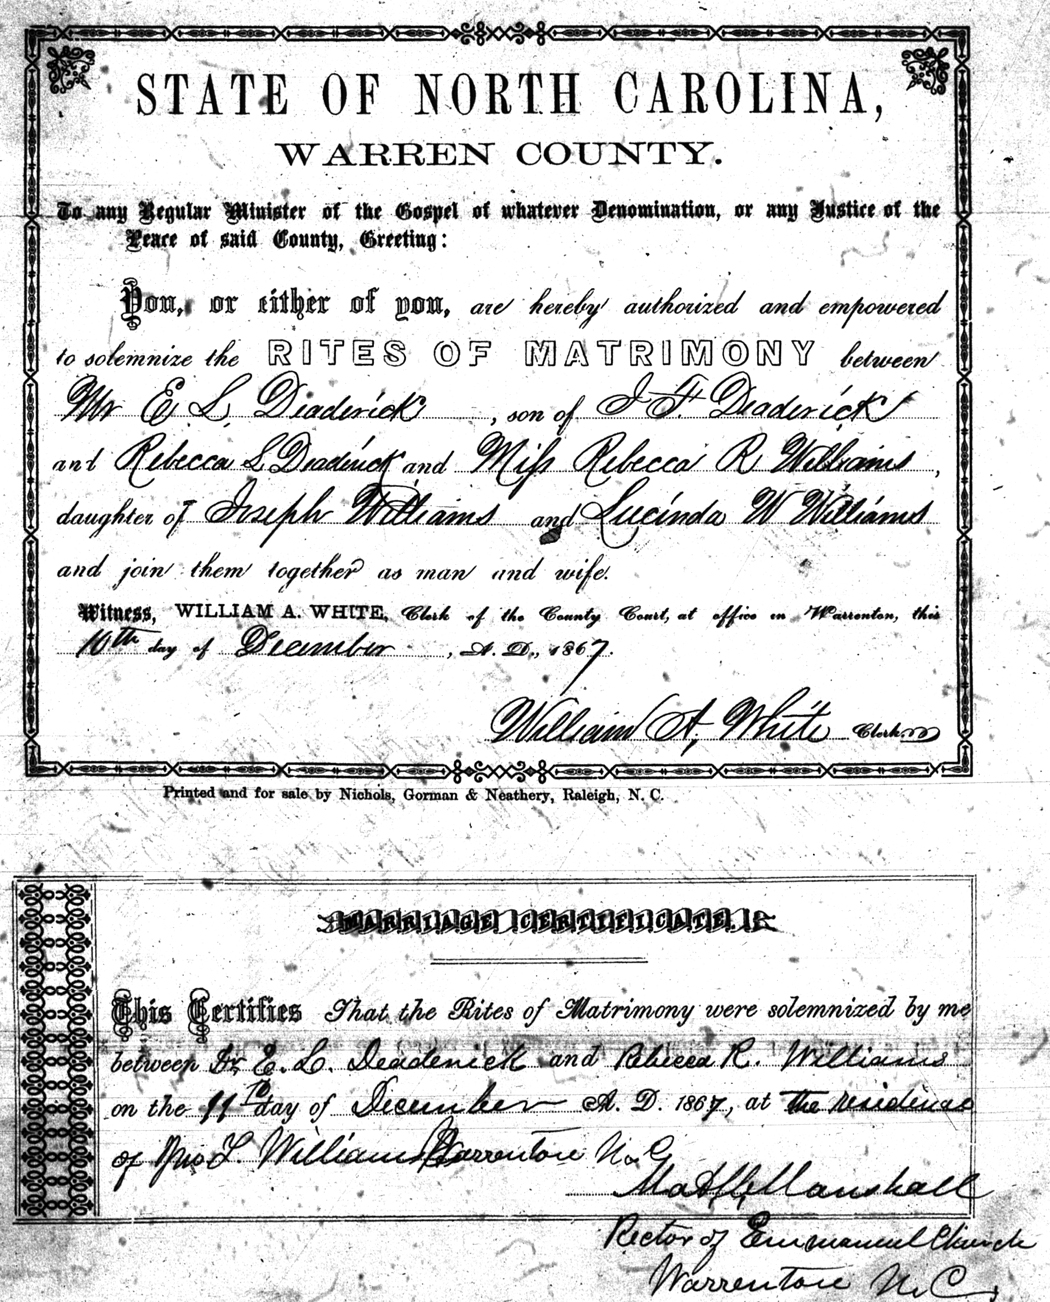 STATE OF NORTH CAROLINA,
WARREN COUNTY.
To any Regular Minister of the Gospel of whatever Denomination, or any Justice of the
Peace of said County, Greeting:
You, or either of you, are hereby authorized and empowered
to solemnize the RITES OF MATRIMONY between
Mr E. L. Deaderick, son of J F Deaderick
and Rebecca L Deaderick and Miss Rebecca R Williams,
daughter of Joseph Williams and Lucinda W Williams
and join them together as man and wife.
Witness, WILLIAM A. WHITE, Clerk of the County Court, at office in Warrenton, this
10th day of December, A. D., 1867.
William A. White Clerk
Printed and for sale by Nichols, Gorman & Neathery, Raleigh, N. C.
MARRIAGE CERTIFICATE.
This Certifies That the Rites of Matrimony were solemnized by me
between Dr E. L. Deaderick and Rebecca R. Williams
on the 11th day of December A. D. 1867, at the residence
of Williams Warrenton N. C.
Marshall
Rector of Emmanuel Church
Warrenton N. C.